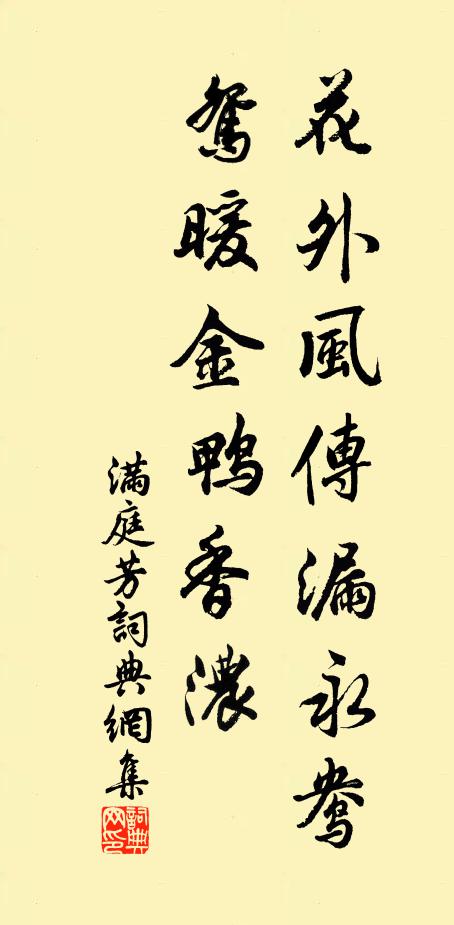 花外風傳漏永鴦
鴛暖金鴨香濃
滿庭芳詞典網集
詞典網印